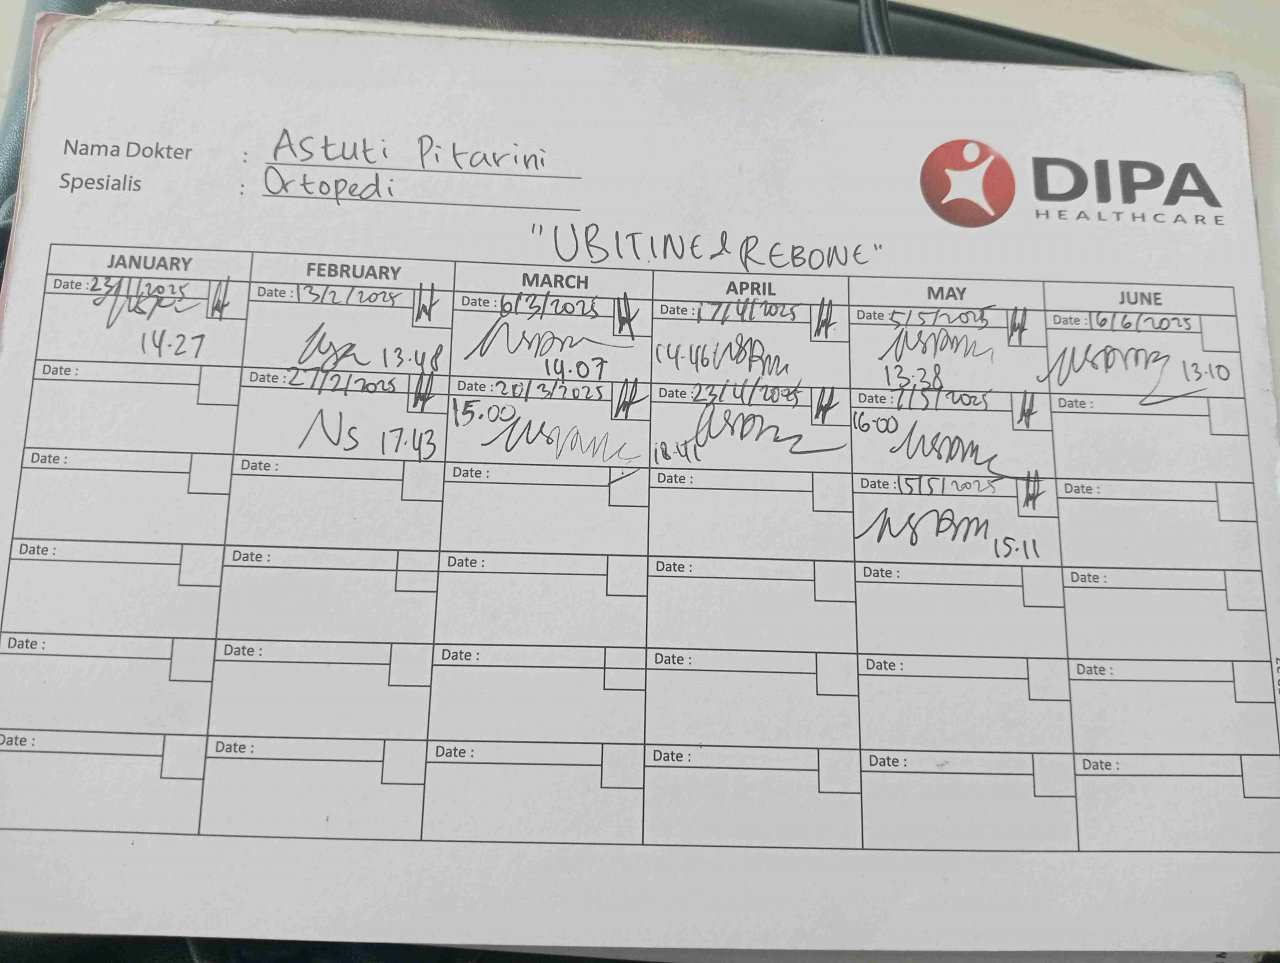 Nama Dokter : Astuti Pitarini
Spesialis : Ortopedi
DIPA
HEALTHCARE
"UBITINE & REBONE"
JANUARY FEBRUARY MARCH APRIL MAY JUNE
Date : 23/1/2025 Date : 13/2/2025 Date : 6/3/2025 Date : 17/4/2025 Date : 5/5/2025 Date : 16/6/2025
14.27 13.48 14.07 14.46 13.38 13.10
Date : Date : 27/2/2025 Date : 20/3/2025 Date : 23/4/2025 Date : 7/5/2025 Date :
Ns 17.43 15.00 18.41 16.00
Date : Date : Date : Date : Date : 15/5/2025 Date :
15.11
Date : Date : Date : Date : Date : Date :
Date : Date : Date : Date : Date : Date :
Date : Date : Date : Date : Date : Date :